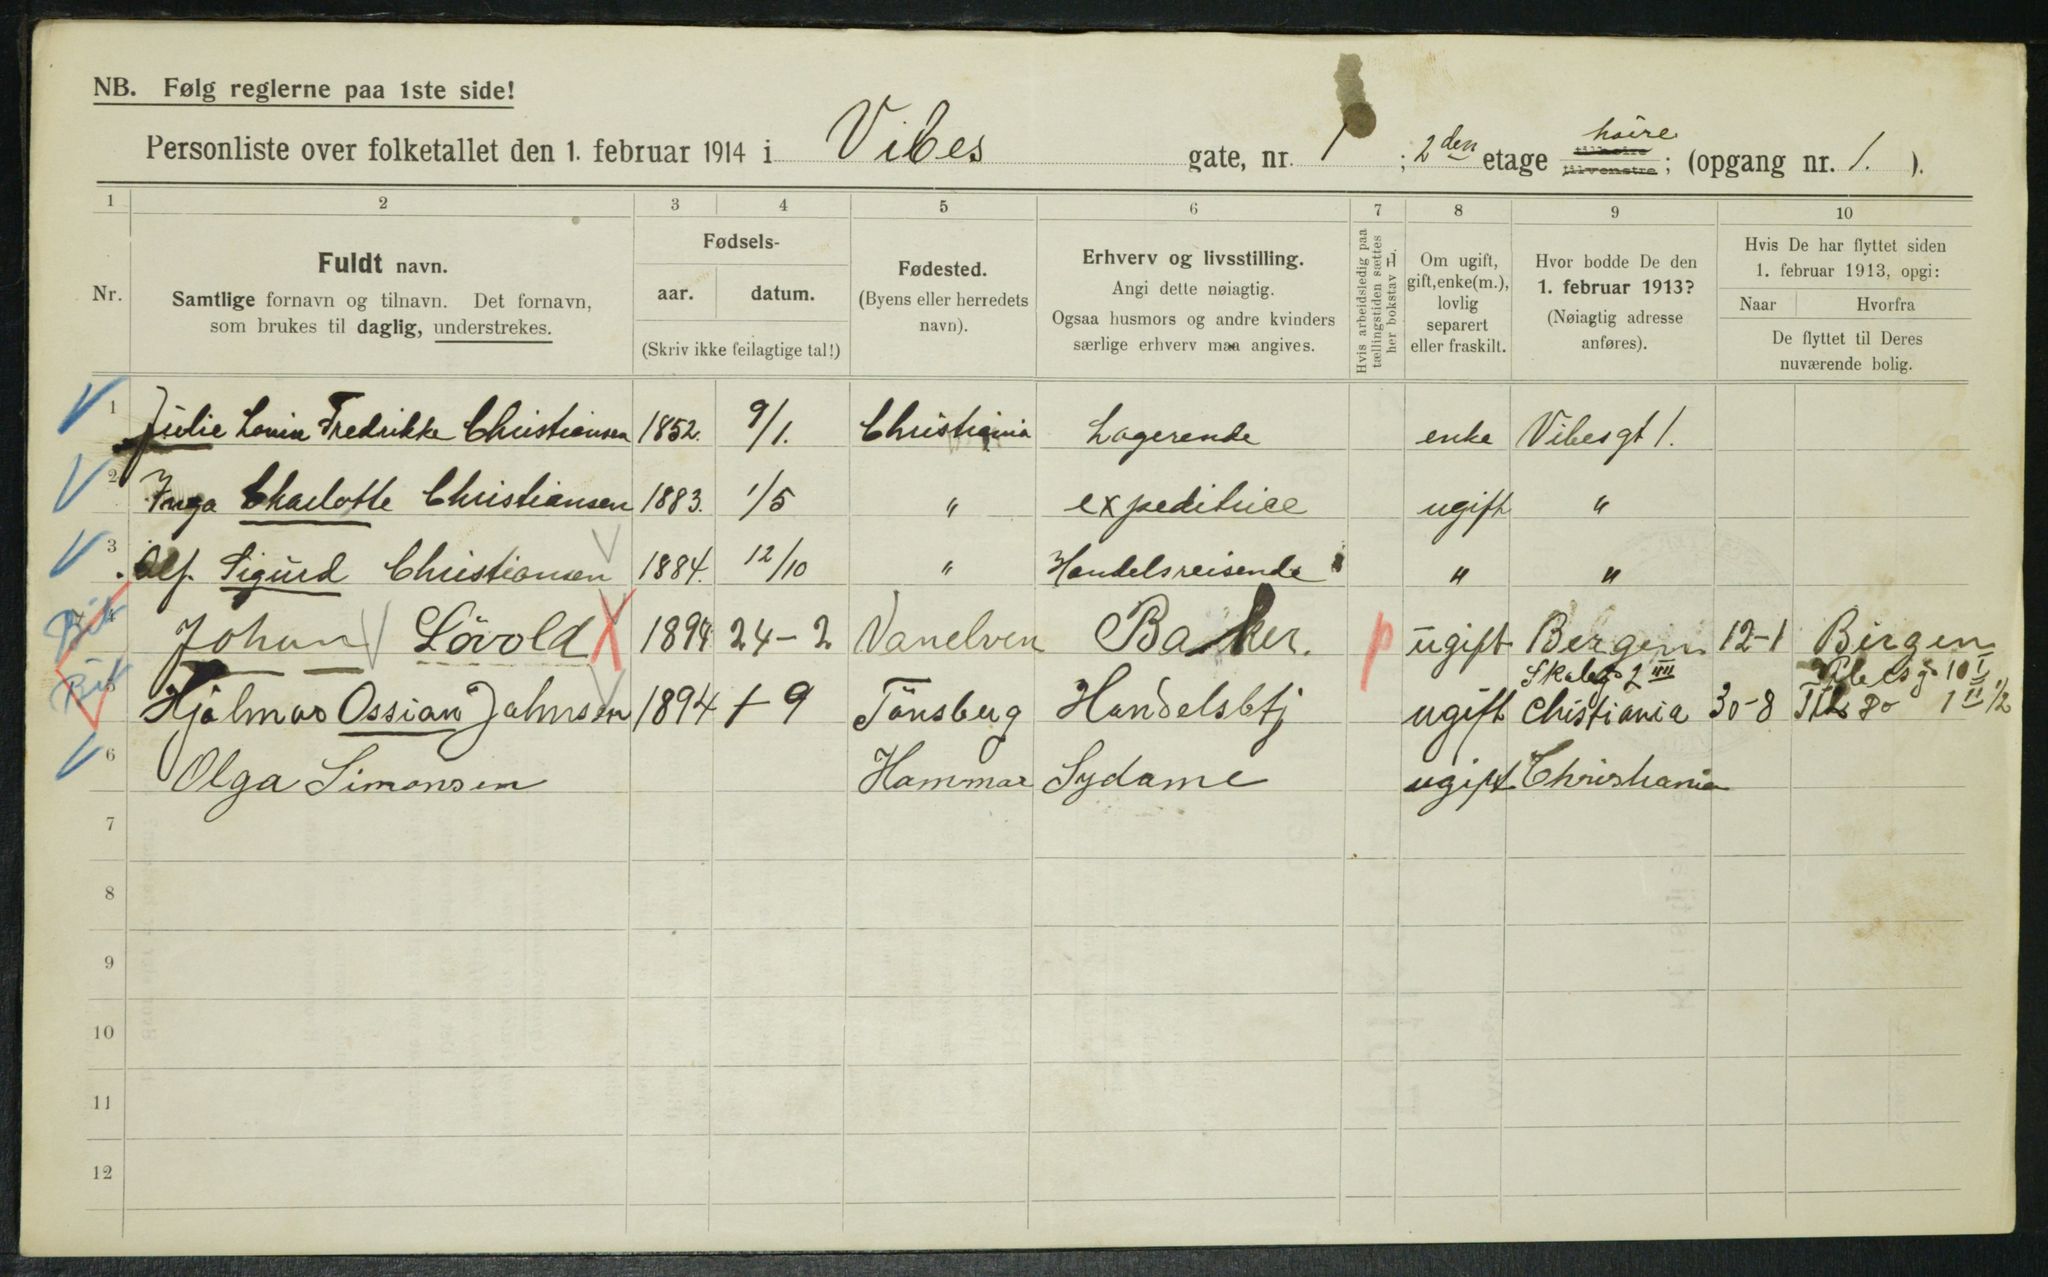 NB. Følg reglerne paa 1ste side!
Personliste over folketallet den 1. februar 1914 i Vibes gate, nr. 1; 2den etage høire tilhøire tilvenstre; (opgang nr. 1.).
1 2 3 4 5 6 7 8 9 10
Nr.
Fuldt navn.
Samtlige fornavn og tilnavn. Det fornavn,
som brukes til daglig, understrekes.
Fødsels-
aar. datum.
(Skriv ikke feilagtige tal!)
Fødested.
(Byens eller herredets
navn).
Erhverv og livsstilling.
Angi dette nøiagtig.
Ogsaa husmors og andre kvinders
særlige erhverv maa angives.
Hvis arbeidsledig paa
tællingstiden sættes
her bokstav L.
Om ugift,
gift, enke(m.),
lovlig
separert
eller fraskilt.
Hvor bodde De den
1. februar 1913?
(Nøiagtig adresse
anføres).
Hvis De har flyttet siden
1. februar 1913, opgi:
Naar Hvorfra
De flyttet til Deres
nuværende bolig.
1 Julie Fredrikke Christiansen 1852. 9/1. Christiania Logerende enke Vibesgt 1.
2 Inga Charlotte Christiansen 1883. 1/5 " expeditrice ugift "
3 Sigurd Christiansen 1884. 12/10 " Handelsreisende " "
4 Johan Lövold X 1894 24-2 Vanelven Baker. p ugift Bergen 12-1 Bergen
5 Hjalmar Ossian 1894 9 Tönsberg Handelsbtj ugift Christiania 30-8
6 Olga Simonsen Hammar Sydame ugift Christiania
7
8
9
10
11
12